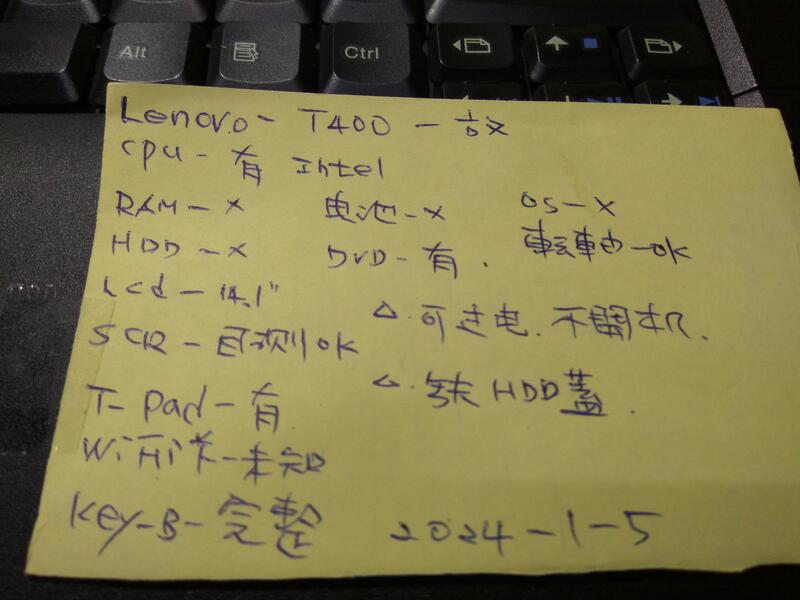 Alt
Ctrl
Lenovo - T400 - 故
cpu - 有 Intel
RAM - x 电池 - x OS - X
HDD - x DVD - 有. 転軸 - OK
Lcd - 14.1"
△. 可走电. 不開机.
SCR - 目测 OK
△. 缺 HDD 蓋.
T- Pad - 有
WiHi卡 - 未知
Key-B - 完整 2024-1-5